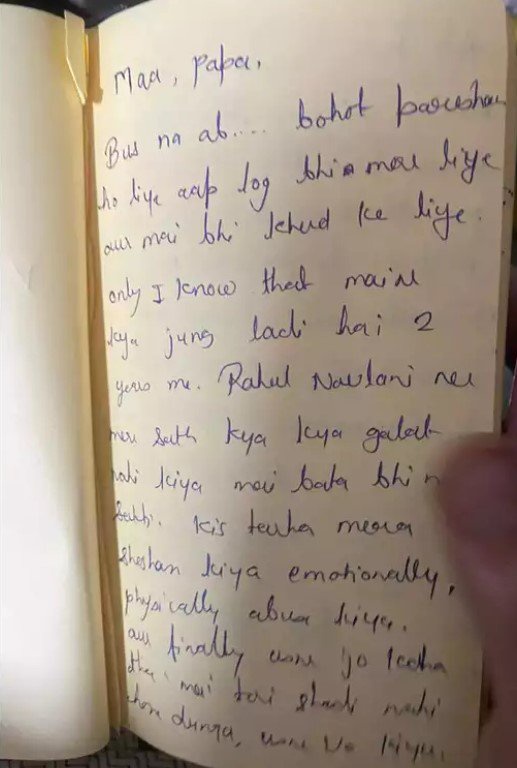 Maa, Papa,
Bus na ab.... bohot pareshan
ho liye aap log bhi mere liye
aur mai bhi khud ke liye.
only I know that maine
kya jung ladi hai 2
years me. Rahul Navlani ne
mere sath kya kya galat
nahi kiya mai bata bhi n
Sakti. Kis tarha mera
Shoshan kiya emotionally,
physically abuse kiya.
aur finally usne jo kaha
tha, mai teri shadi nahi
hone dunga, usne vo kiya.